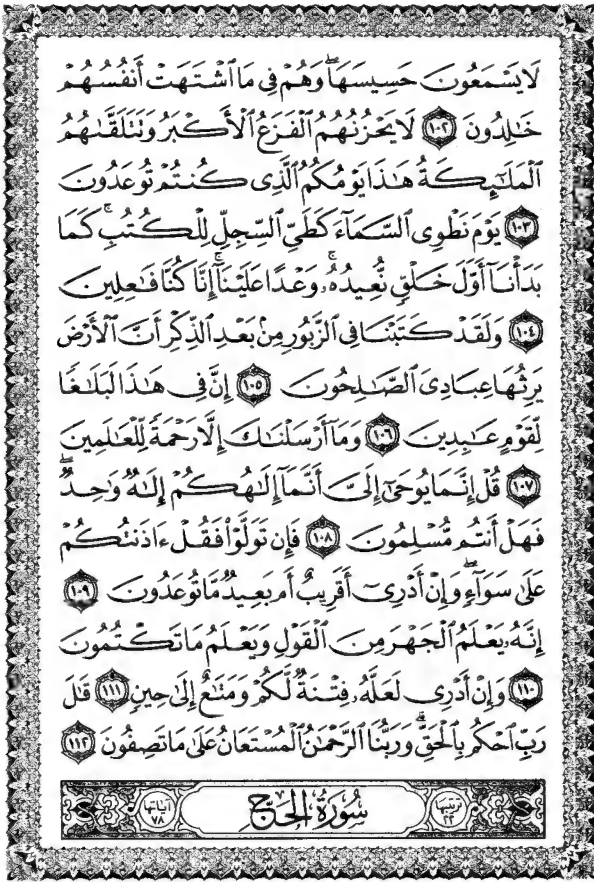 لَا يَسْمَعُونَ حَسِيسَهَا ۖ وَهُمْ فِي مَا ٱشْتَهَتْ أَنفُسُهُمْ
خَٰلِدُونَ ١٠٢ لَا يَحْزُنُهُمُ ٱلْفَزَعُ ٱلْأَكْبَرُ وَتَتَلَقَّىٰهُمُ
ٱلْمَلَٰٓئِكَةُ هَٰذَا يَوْمُكُمُ ٱلَّذِي كُنتُمْ تُوعَدُونَ
١٠٣ يَوْمَ نَطْوِي ٱلسَّمَآءَ كَطَيِّ ٱلسِّجِلِّ لِلْكُتُبِ ۚ كَمَا
بَدَأْنَآ أَوَّلَ خَلْقٍ نُّعِيدُهُۥ ۚ وَعْدًا عَلَيْنَآ ۚ إِنَّا كُنَّا فَٰعِلِينَ
١٠٤ وَلَقَدْ كَتَبْنَا فِي ٱلزَّبُورِ مِنۢ بَعْدِ ٱلذِّكْرِ أَنَّ ٱلْأَرْضَ
يَرِثُهَا عِبَادِيَ ٱلصَّٰلِحُونَ ١٠٥ إِنَّ فِي هَٰذَا لَبَلَٰغًا
لِّقَوْمٍ عَٰبِدِينَ ١٠٦ وَمَآ أَرْسَلْنَٰكَ إِلَّا رَحْمَةً لِّلْعَٰلَمِينَ
١٠٧ قُلْ إِنَّمَا يُوحَىٰٓ إِلَيَّ أَنَّمَآ إِلَٰهُكُمْ إِلَٰهٌ وَٰحِدٌ ۖ
فَهَلْ أَنتُم مُّسْلِمُونَ ١٠٨ فَإِن تَوَلَّوْا۟ فَقُلْ ءَاذَنتُكُمْ
عَلَىٰ سَوَآءٍ ۖ وَإِنْ أَدْرِيٓ أَقَرِيبٌ أَم بَعِيدٌ مَّا تُوعَدُونَ ١٠٩
إِنَّهُۥ يَعْلَمُ ٱلْجَهْرَ مِنَ ٱلْقَوْلِ وَيَعْلَمُ مَا تَكْتُمُونَ
١١٠ وَإِنْ أَدْرِي لَعَلَّهُۥ فِتْنَةٌ لَّكُمْ وَمَتَٰعٌ إِلَىٰ حِينٍ ١١١ قَٰلَ
رَبِّ ٱحْكُم بِٱلْحَقِّ ۗ وَرَبُّنَا ٱلرَّحْمَٰنُ ٱلْمُسْتَعَانُ عَلَىٰ مَا تَصِفُونَ ١١٢
ترتيبها ٢٢ سُورَةُ الْحَجِّ آياتها ٧٨